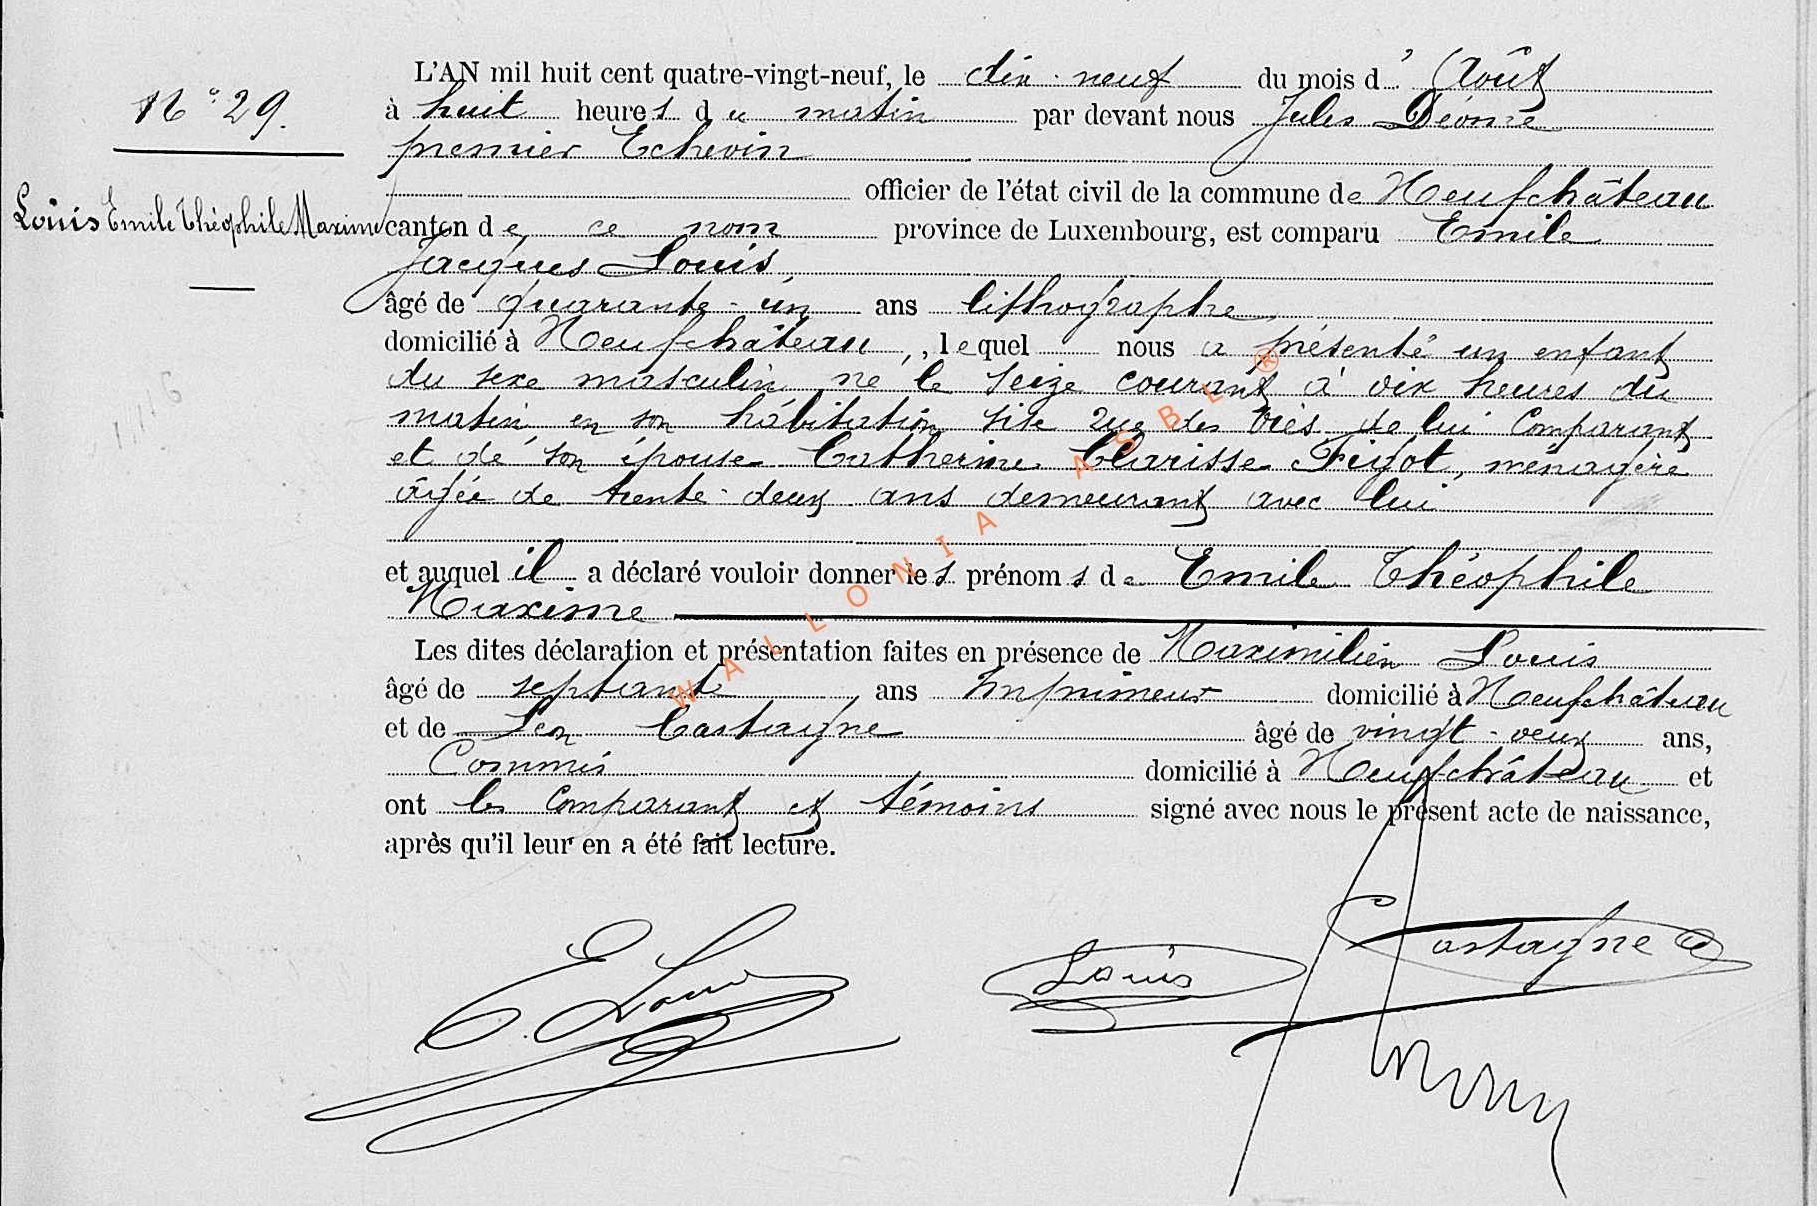 N° 29.
Louis Emile Théophile Maxime
L'AN mil huit cent quatre-vingt-neuf, le dix-neuf du mois d'Août
à huit heures du matin par devant nous Jules
premier Echevin
officier de l'état civil de la commune de Neufchâteau
canton de ce nom province de Luxembourg, est comparu Emile
Jacques Louis,
âgé de quarante-un ans lithographe,
domicilié à Neufchâteau, lequel nous a présenté un enfant
du sexe masculin né le seize courant à dix heures du
matin, en son habitation sise rue des de lui Comparant
et de son épouse Catherine Clarisse, ménagère
âgée de trente-deux ans demeurant avec lui
et auquel il a déclaré vouloir donner les prénoms de Emile Théophile
Maxime
Les dites déclaration et présentation faites en présence de Maximilien Louis
âgé de septante ans Imprimeur domicilié à Neufchâteau
et de Léon Castaigne âgé de vingt-deux ans,
Commis domicilié à Neufchâteau et
ont les Comparant et témoins signé avec nous le présent acte de naissance,
après qu'il leur en a été fait lecture.
WALLONIA ASBL ®
E. Louis
Louis
Castaigne